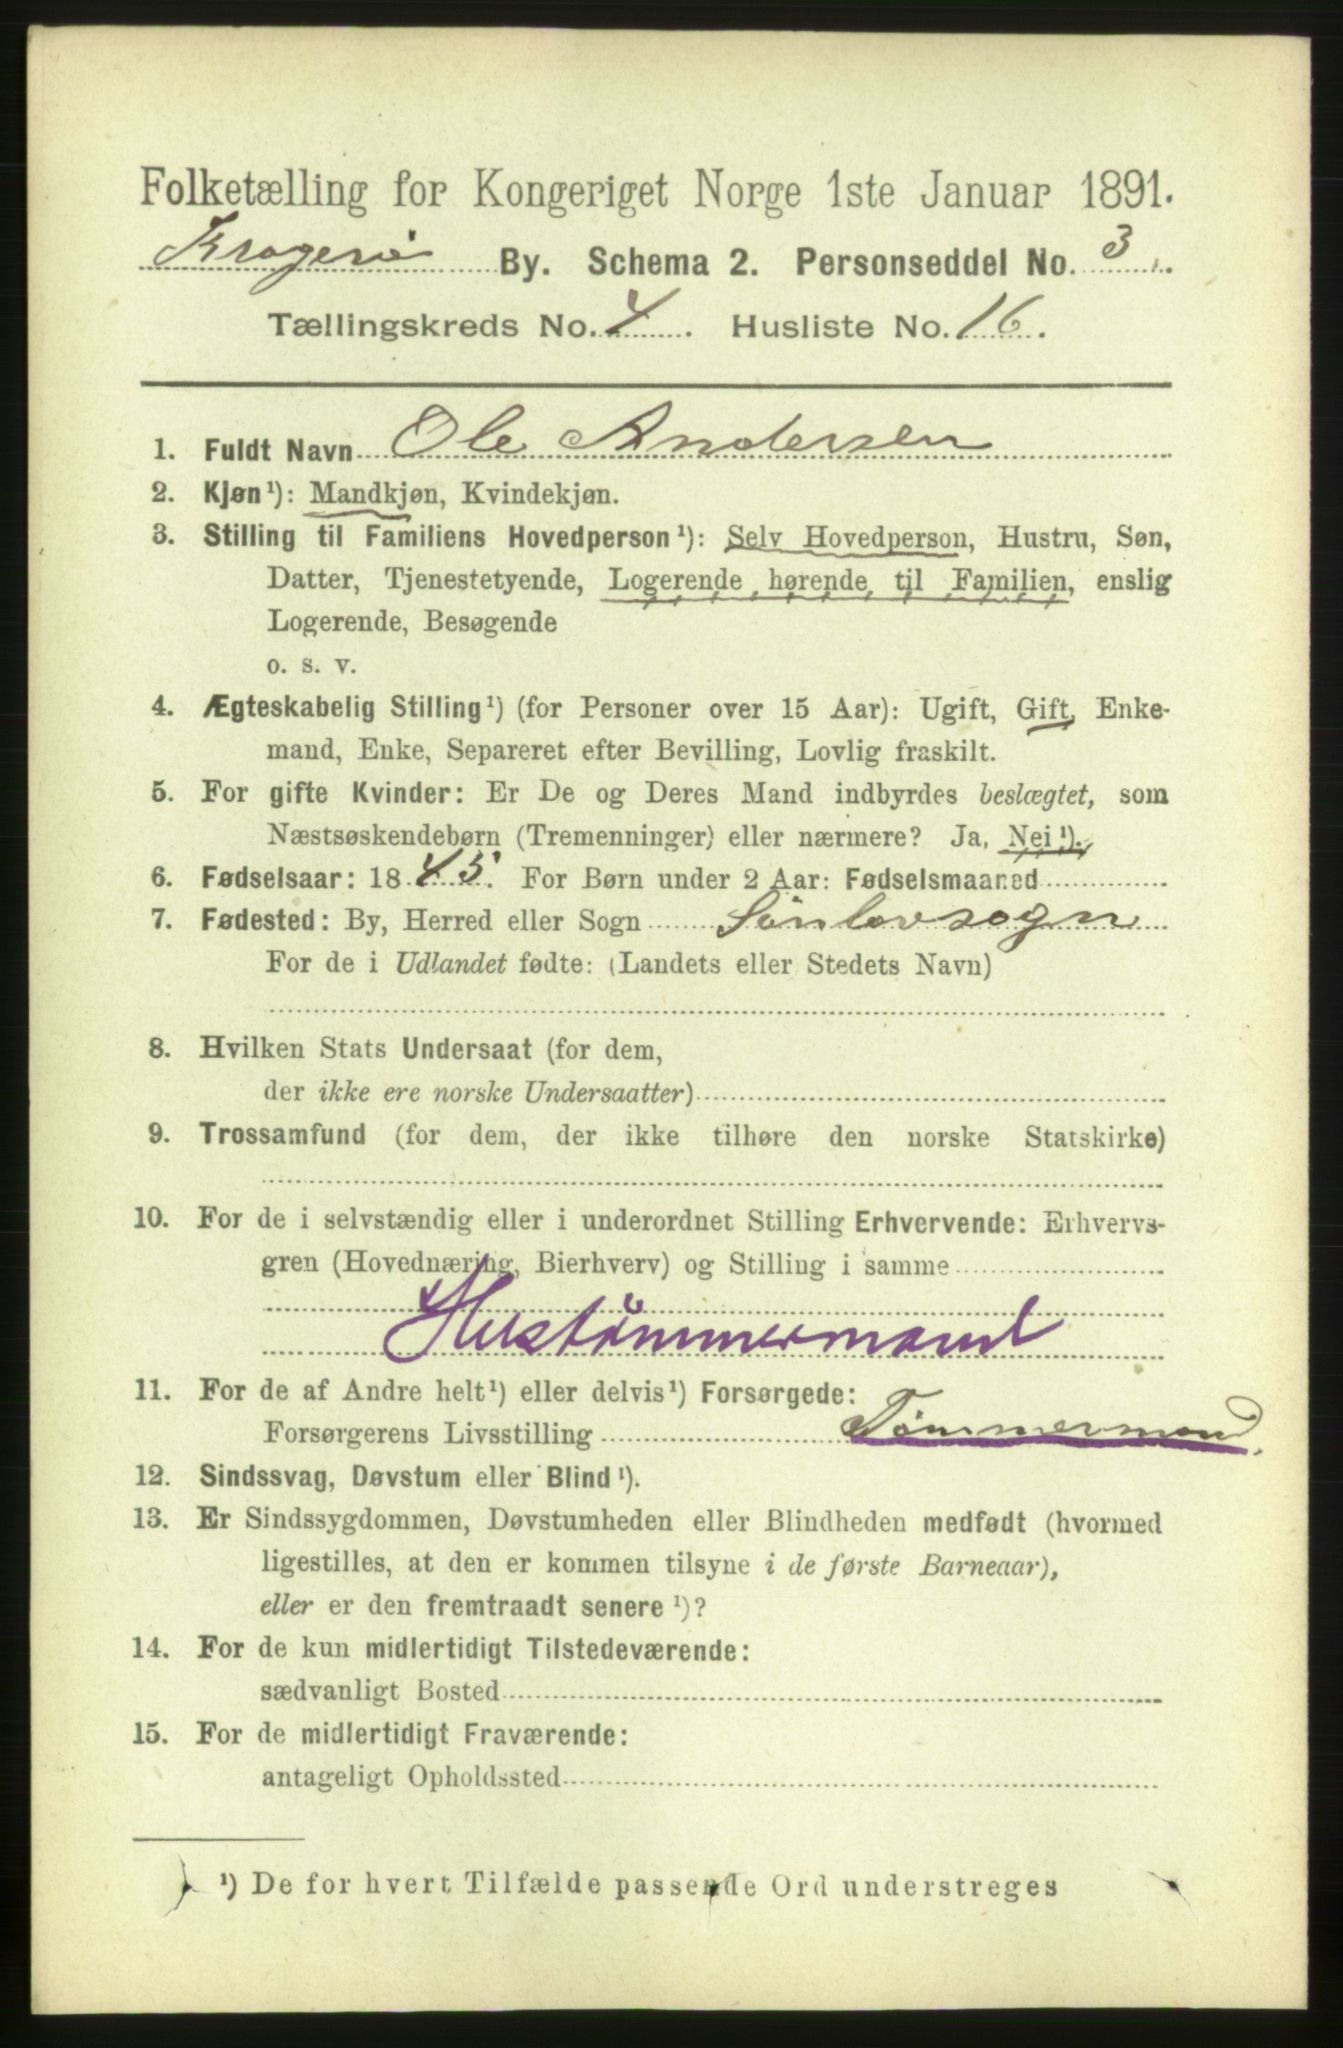 Folketælling for Kongeriget Norge 1ste Januar 1891.
Kragerø By. Schema 2. Personseddel No. 3.
Tællingskreds No. 4. Husliste No. 16.
1. Fuldt Navn Ole Andersen
2. Kjøn¹): Mandkjøn, Kvindekjøn.
3. Stilling til Familiens Hovedperson¹): Selv Hovedperson, Hustru, Søn,
Datter, Tjenestetyende, Logerende hørende til Familien, enslig
Logerende, Besøgende
o. s. v.
4. Ægteskabelig Stilling¹) (for Personer over 15 Aar): Ugift, Gift, Enke-
mand, Enke, Separeret efter Bevilling, Lovlig fraskilt.
5. For gifte Kvinder: Er De og Deres Mand indbyrdes beslægtet, som
Næstsøskendebørn (Tremenninger) eller nærmere? Ja, Nei¹).
6. Fødselsaar: 1845. For Børn under 2 Aar: Fødselsmaaned
7. Fødested: By, Herred eller Sogn
For de i Udlandet fødte: (Landets eller Stedets Navn)
8. Hvilken Stats Undersaat (for dem,
der ikke ere norske Undersaatter)
9. Trossamfund (for dem, der ikke tilhøre den norske Statskirke)
10. For de i selvstændig eller i underordnet Stilling Erhvervende: Erhvervs-
gren (Hovednæring, Bierhverv) og Stilling i samme
Hustømmermand
11. For de af Andre helt¹) eller delvis¹) Forsørgede:
Forsørgerens Livsstilling Tømmermand.
12. Sindssvag, Døvstum eller Blind¹).
13. Er Sindssygdommen, Døvstumheden eller Blindheden medfødt (hvormed
ligestilles, at den er kommen tilsyne i de første Barneaar),
eller er den fremtraadt senere¹)?
14. For de kun midlertidigt Tilstedeværende:
sædvanligt Bosted
15. For de midlertidigt Fraværende:
antageligt Opholdssted
¹) De for hvert Tilfælde passende Ord understreges